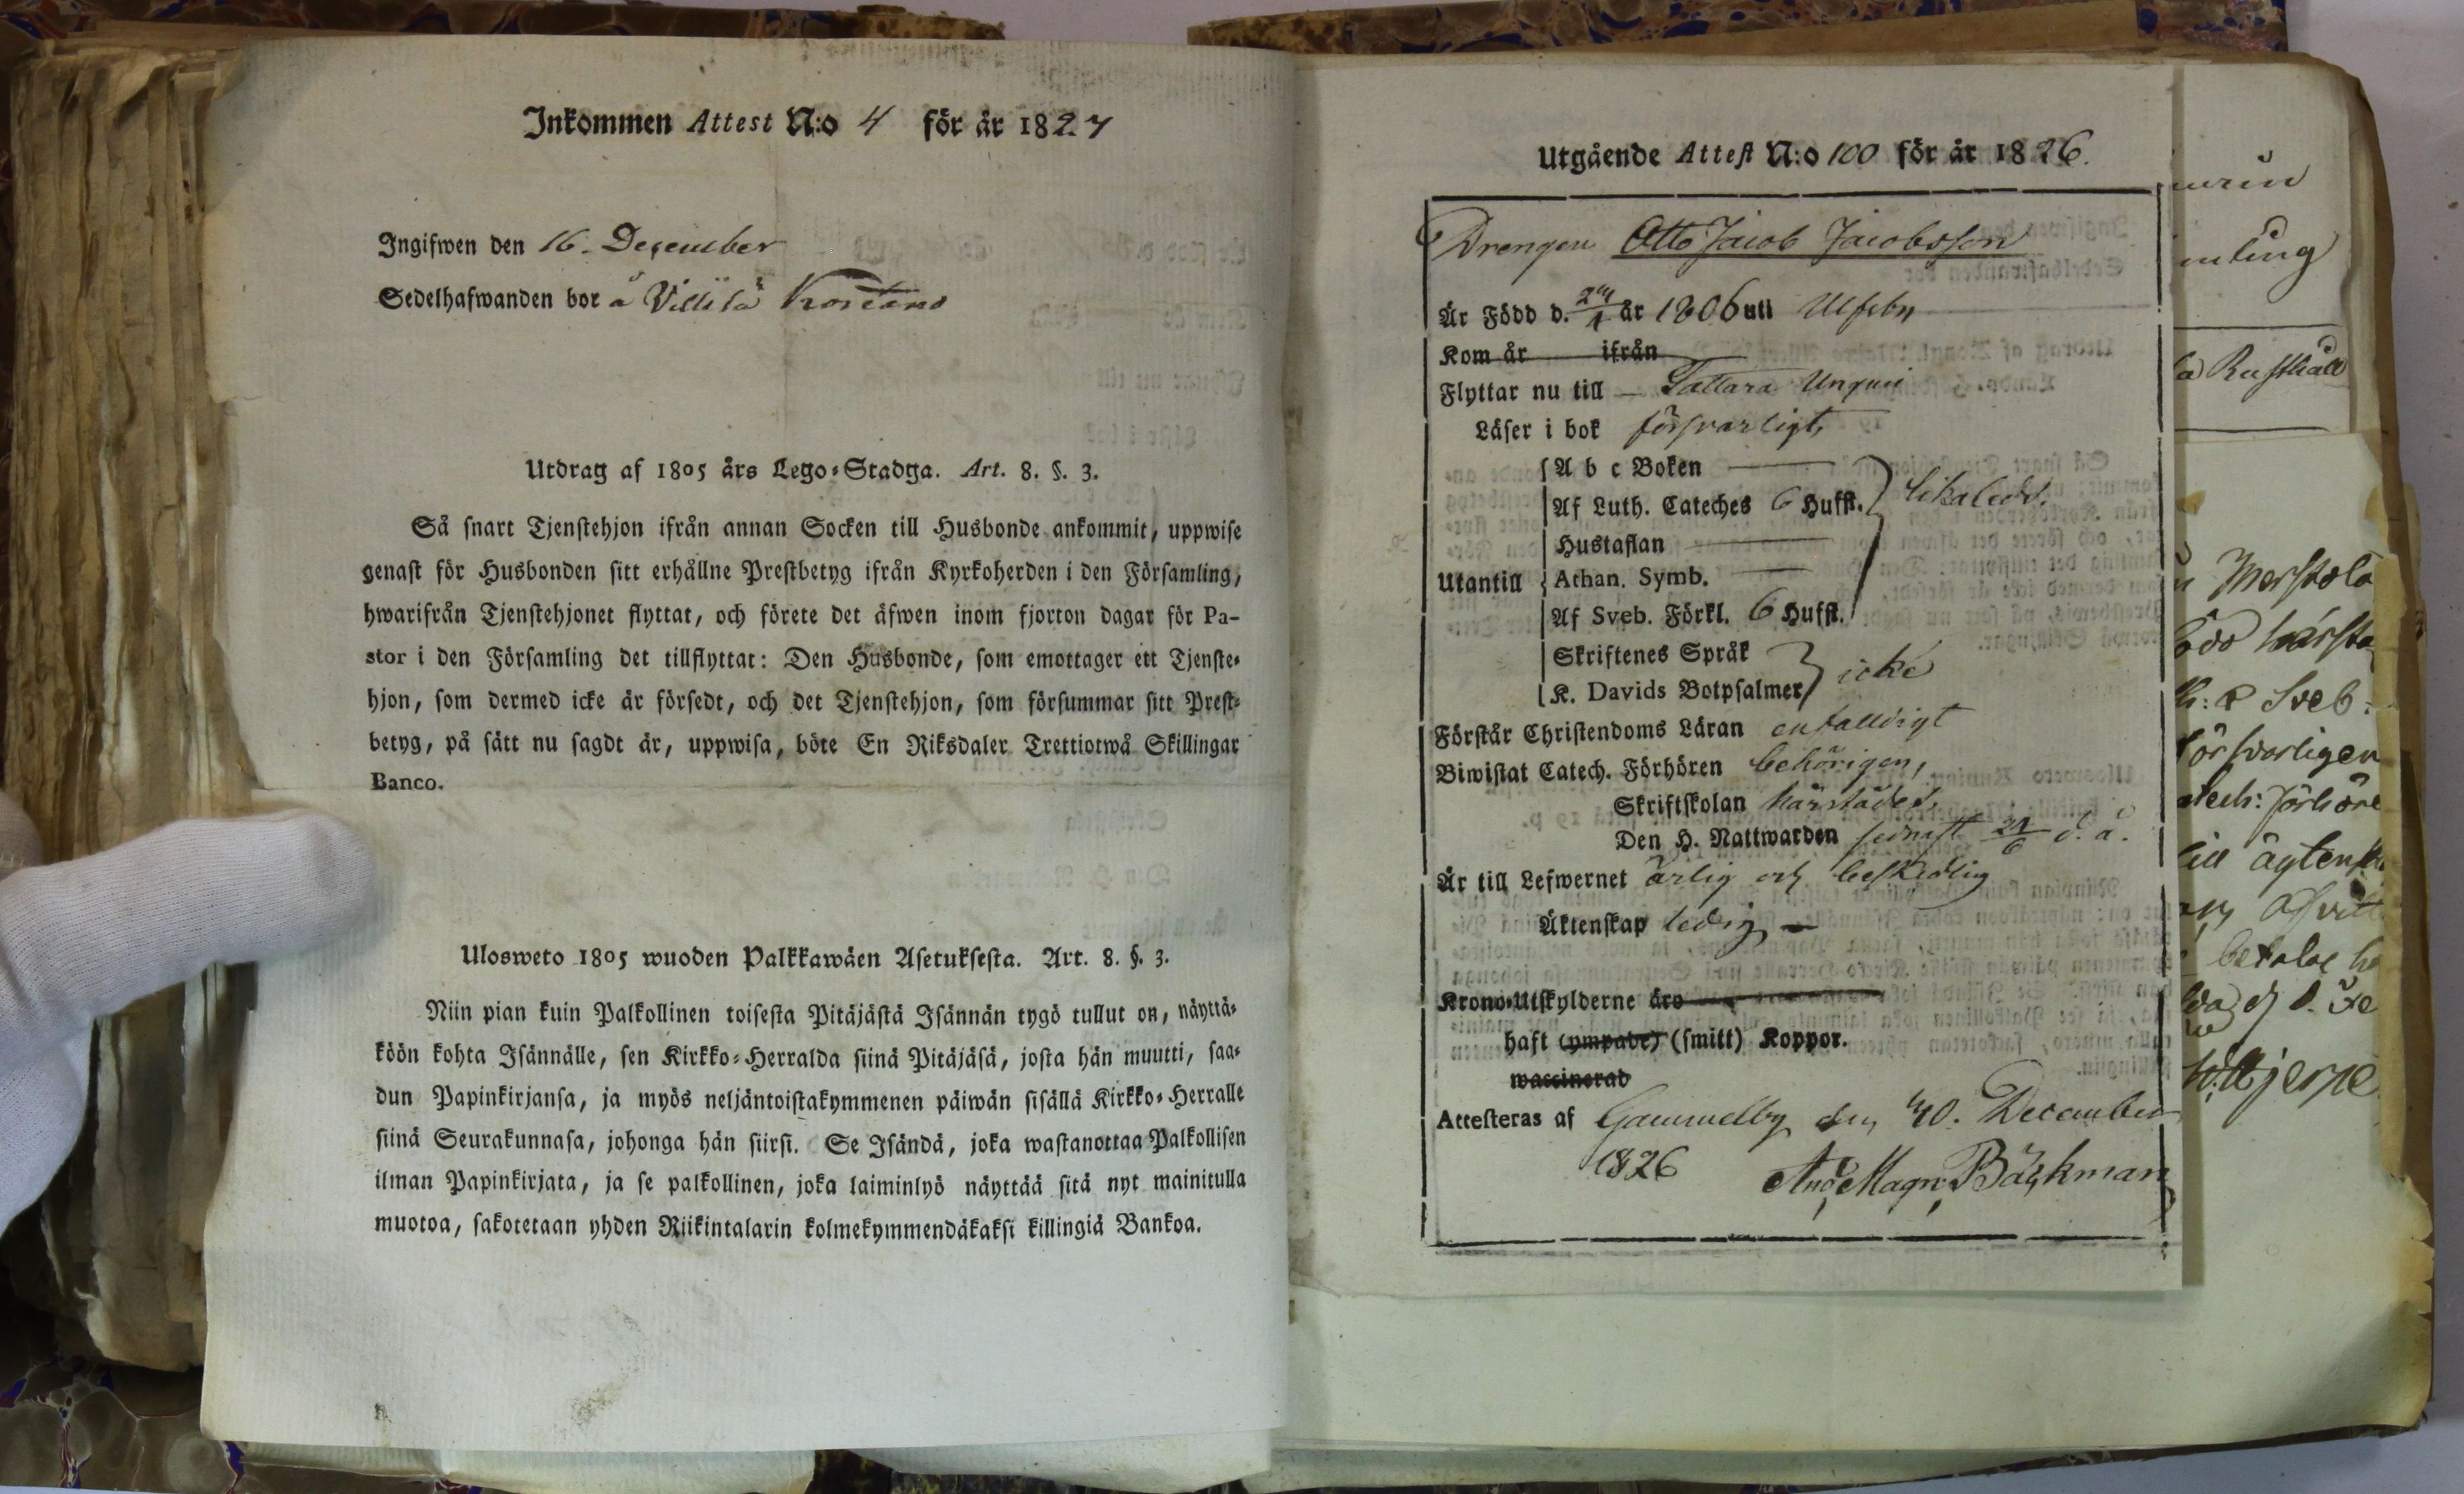 Inkommen Attest N:o 4 för år 1827
Ingifwen den 16. December
Sedelhafwanden bor å Villilä
Utdrag af 1805 års Lego-Stadga. Art. 8. §. 3.
Så snart Tjenstehjon ifrån annan Socken till Husbonde ankommit, uppwise
genast för Husbonden sitt erhållne Prestbetyg ifrån Kyrkoherden i den Församling,
hwarifrån Tjenstehjonet flyttat, och förete det äfwen inom fjorton dagar för Pa-
stor i den Församling det tillflyttat: Den Husbonde, som emottager ett Tjenste-
hjon, som dermed icke är försedt, och det Tjenstehjon, som försummar sitt Prest-
betyg, på sätt nu sagdt är, uppwisa, böte En Riksdaler Trettiotwå Skillingar
Banco.
Ulosweto 1805 wuoden Palkkawäen Asetuksesta. Art. 8. §. 3.
Niin pian kuin Palkollinen toisesta Pitäjästä Isännän tygö tullut on, näyttä-
köön kohta Isännälle, sen Kirkko-Herralda siinä Pitäjäsä, josta hän muutti, saa-
dun Papinkirjansa, ja myös neljäntoistakymmenen päiwän sisällä Kirkko-Herralle
siinä Seurakunnasa, johonga hän siirsi. Se Isändä, joka wastanottaa Palkollisen
ilman Papinkirjata, ja se palkollinen, joka laiminlyö näyttää sitä nyt mainitulla
muotoa, sakotetaan yhden Riikintalarin kolmekymmendäkaksi killingiä Bankoa.
Utgående Attest N:o 100 för år 1826.
Drengen Otto Jacob Jacobsson
Är Född d. 24/1 år 1806 uti Ulfsby
Kom år ifrån
Flyttar nu till Lattara
Läser i bok försvarligt,
A b c Boken
Af Luth. Cateches 6 Hufst. likaledes.
Hustaflan
Utantill Athan. Symb.
Af Sveb. Förkl. 6 Hufst.
Skriftenes Språk
K. Davids Botpsalmer icke
Förstår Christendoms Läran enfalldigt
Biwistat Catech. Förhören behörigen,
Skriftskolan härstädes,
Den H. Nattwarden sednast 24/6 d. å.
Är till Lefwernet ärlig och beskedlig
Äktenskap ledig
Krono-Utskylderne äro
haft (ympade) (smitt) Koppor.
waccinerad
Attesteras af Gammelby den 10. December
1826 And. Magn. Bäckman
Rusthåll
försvarligen